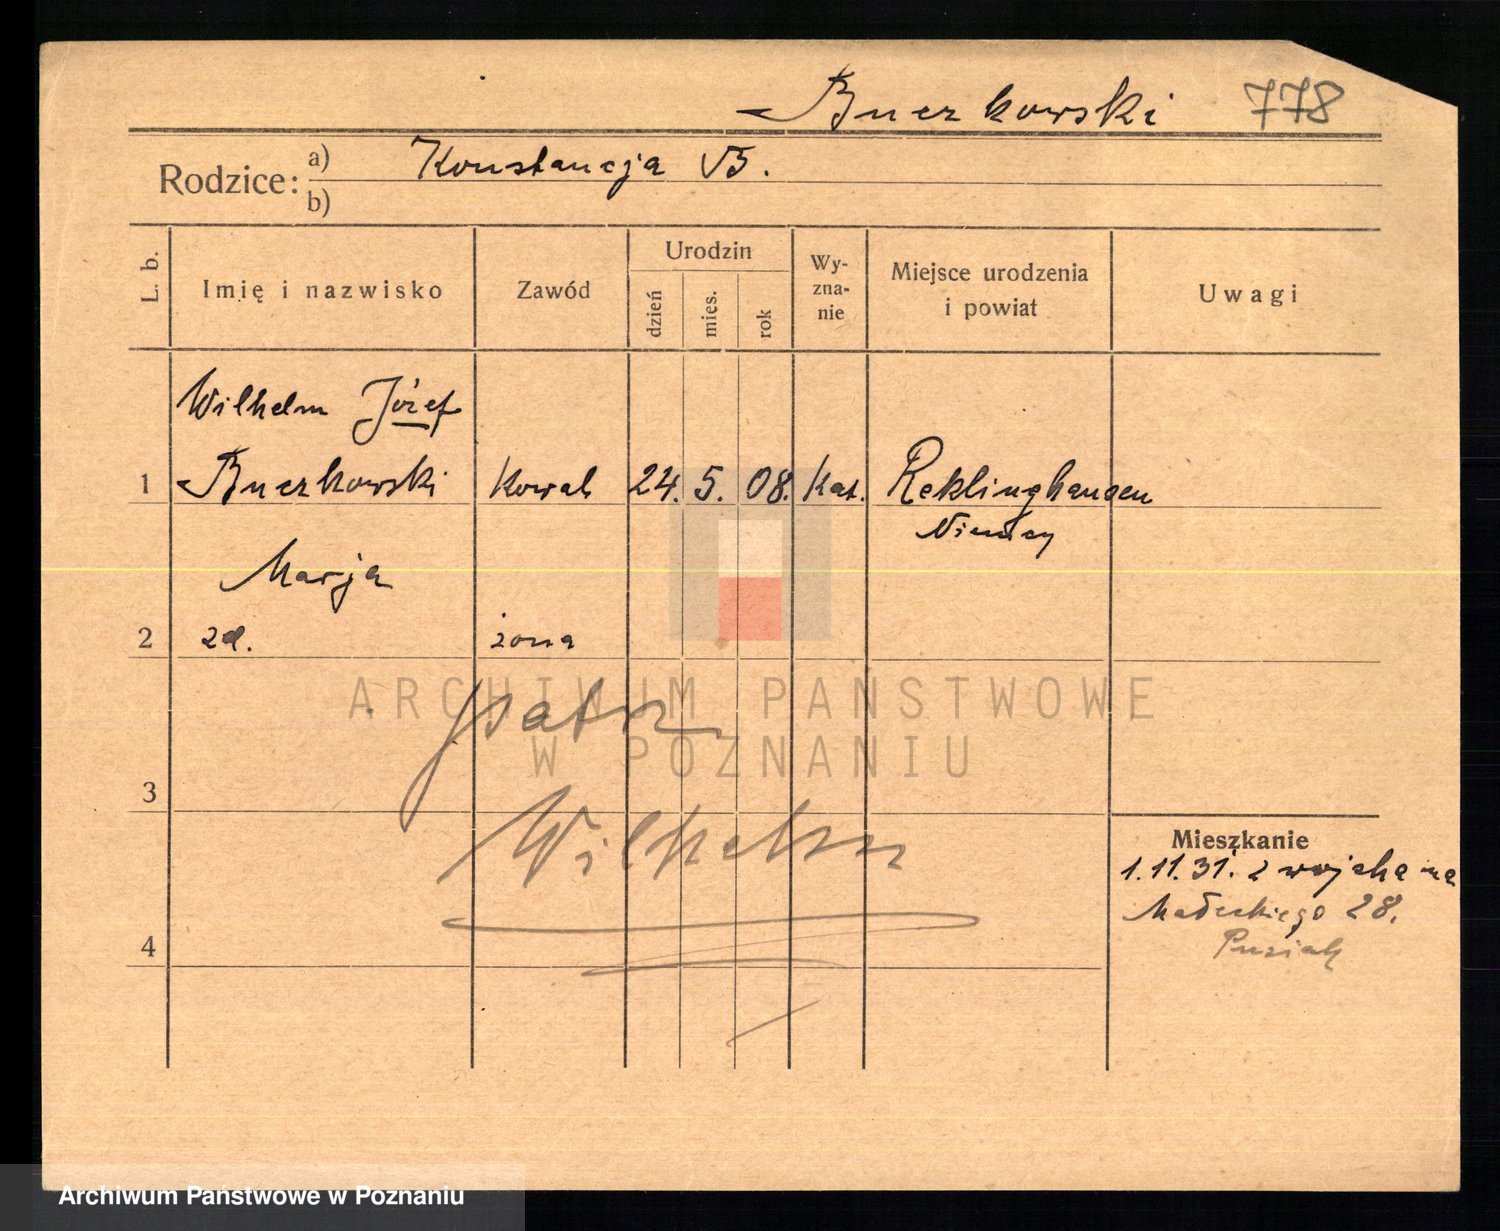 Buczkowski 778
Rodzice: a) Konstancja B.
b)
L. b.
Imię i nazwisko
Zawód
Urodzin
dzień
mies.
rok
Wy-
zna-
nie
Miejsce urodzenia
i powiat
Uwagi
Wilhelm Józef
1 Buczkowski Kowal 24. 5. 08. Kat. Reklinghausen
Niemcy
Marja
2 zd. żona
patrz
3
Wilhelm
4
Mieszkanie
1.11.31. z wojska na
Małeckiego 28.
ARCHIWUM PAŃSTWOWE
W POZNANIU
Archiwum Państwowe w Poznaniu